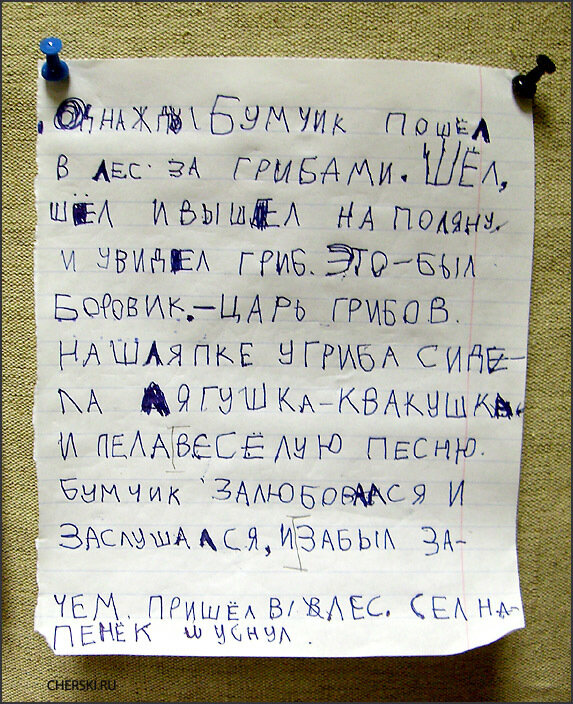 ОДНАЖДЫ БУМЧИК ПОШЁЛ
В ЛЕС ЗА ГРИБАМИ. ШЁЛ,
ШЁЛ И ВЫШЕЛ НА ПОЛЯНУ.
И УВИДЕЛ ГРИБ. ЭТО-БЫЛ
БОРОВИК.-ЦАРЬ ГРИБОВ.
НА ШЛЯПКЕ У ГРИБА СИДЕ-
ЛА ЛЯГУШКА-КВАКУШКА.
И ПЕЛА ВЕСЁЛУЮ ПЕСНЮ.
БУМЧИК ЗАЛЮБОВАЛСЯ И
ЗАСЛУШАЛСЯ, И ЗАБЫЛ ЗА-
ЧЕМ. ПРИШЁЛ В ЛЕС. СЕЛ НА
ПЕНЁК И УСНУЛ.
CHERSKI.RU